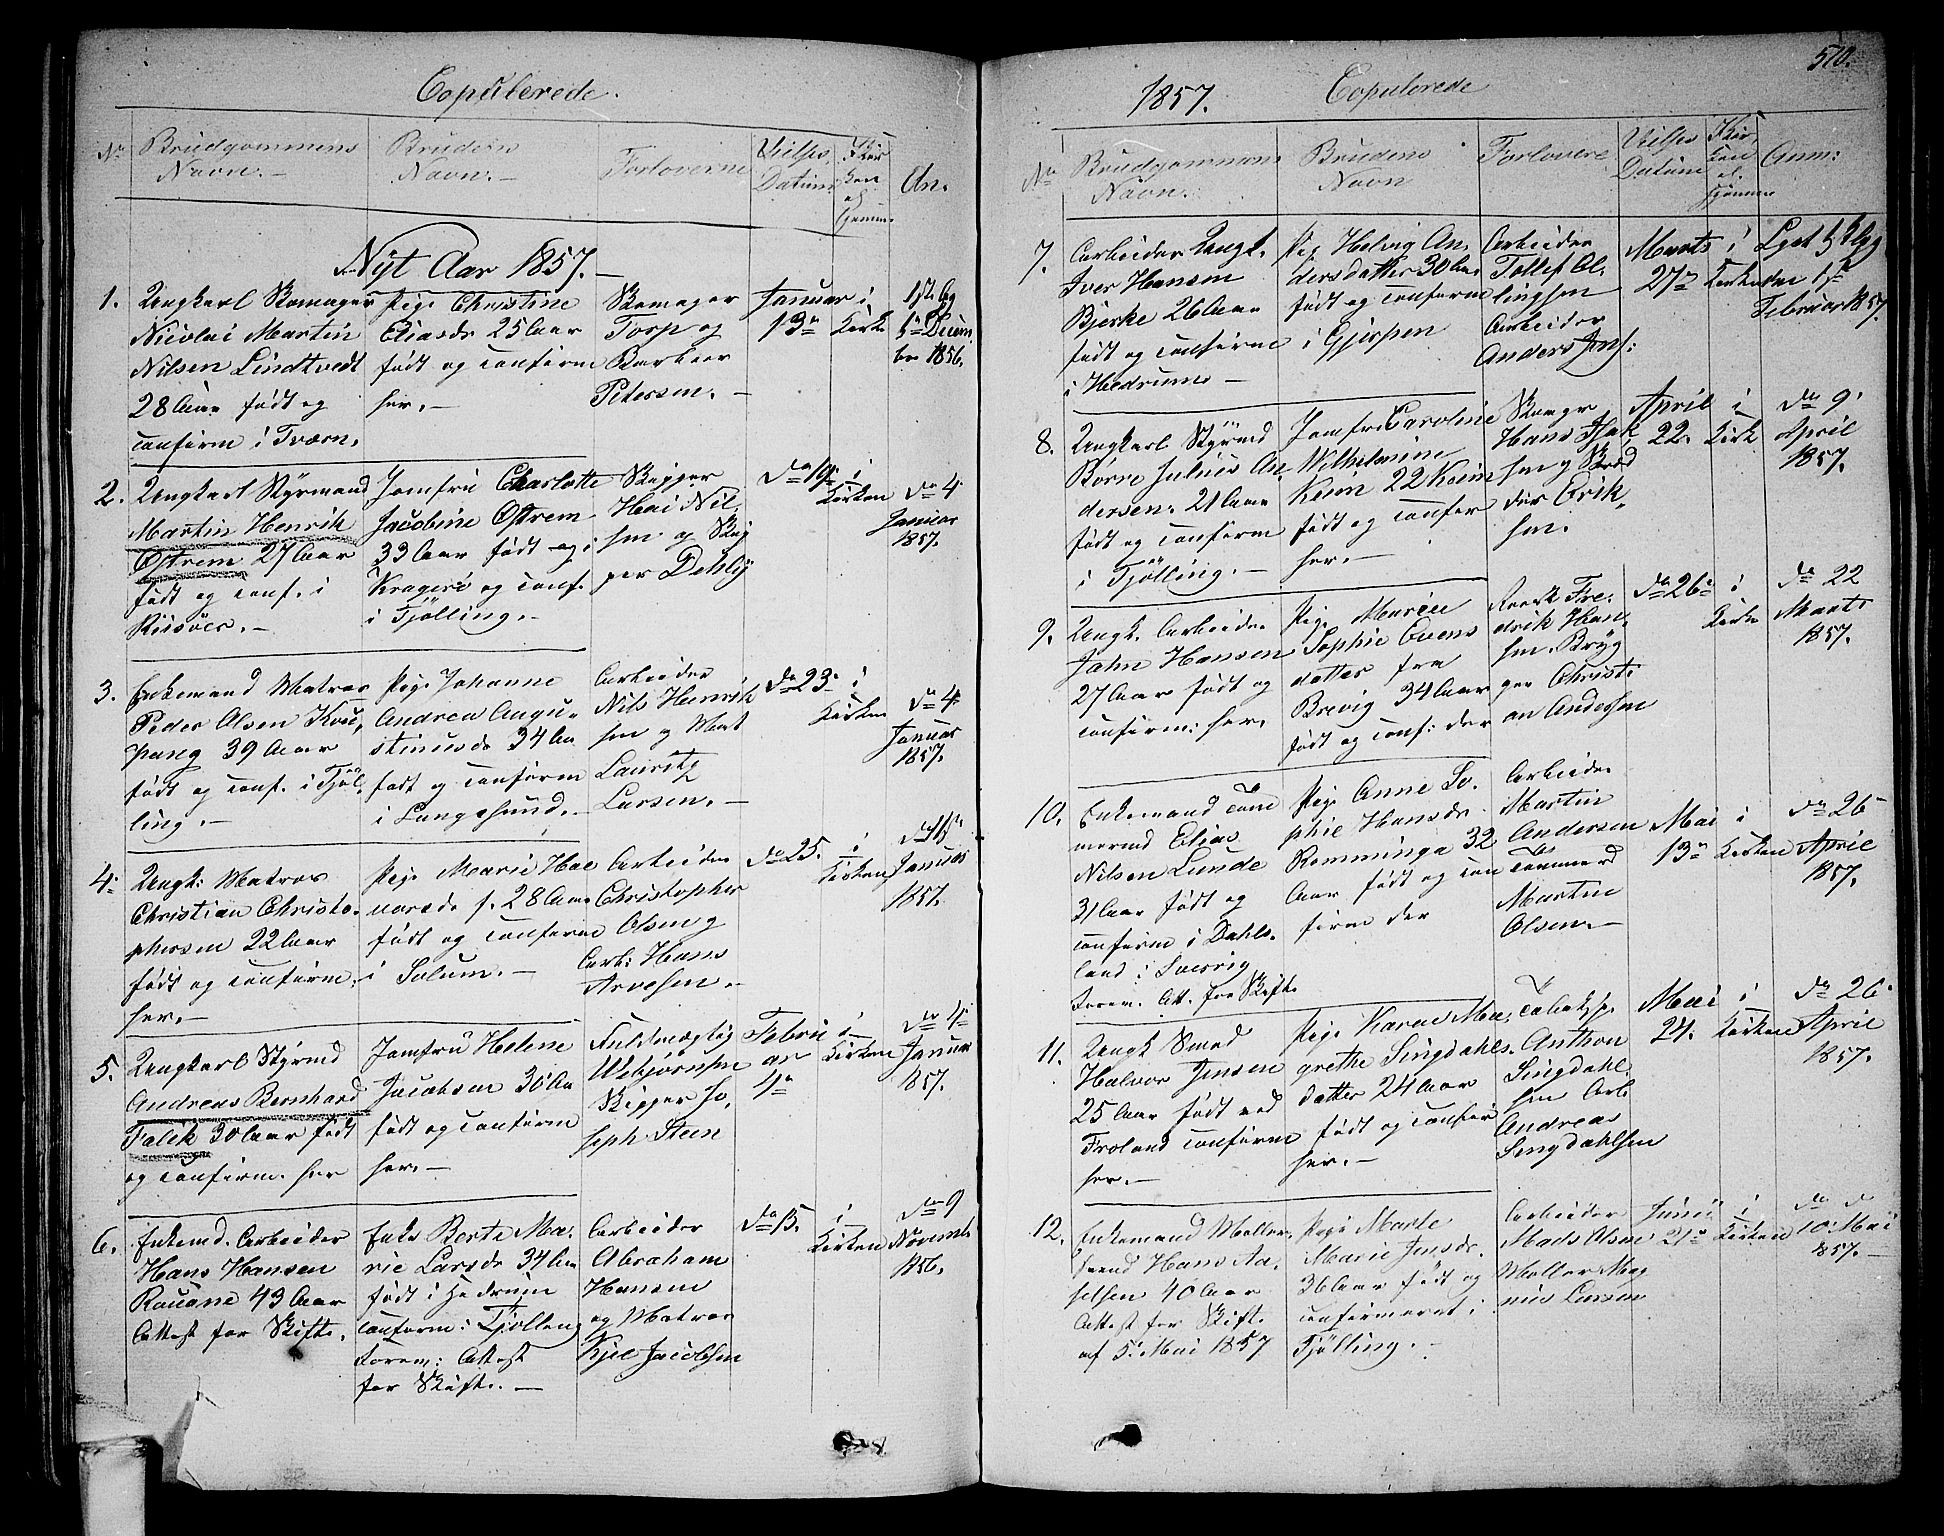 Copulerede.
No
Brudgommens
Navn.
Brudens
Navn.
Forloverne
Vielses
Datum
I Kir
ken
el.
hjemme
An.
Nyt Aar 1857.
1.
Ungkarl Skomager
Nicolai Martin
Nilsen Lindtvedt
28 Aar født og
confirm i Tværn.
Pige Christine
Eliasdr 25 Aar
født og confirm
her.
Skomager
Torp og
Barbeer
Petersen.
Januar
13de
i
Kirke
1st Lyg
4de Decem
br 1856.
2.
Ungkarl Styrmand
Martin Henrik
Ostrem 27 Aar
født og conf. i
Riisöer.
Jomfru Charlotte
Jacobine Ostrem
33 Aar født og i
Kragerö og conf.
i Tjölling.
Skipper
Hai Nil
sen og Skip
per Dehly
Do 19de
i
Kirken
Do 4
Januar
1857.
3.
Enkemand Matros
Peder Olsen Kou,
pang 39 Aar
født og conf. i Tjöl
ling.
Pige Johanne
Andrea Augu
stinusdr 34 Aar
født og confirm
i Langesund.
Arbeider
Nils Henrik
sen og Mat
Lauritz
Larsen.
Do 23
i
Kirken
Do 4
Januar
1857.
4.
Ungk: Matros
Christian Christo
phersen 22 Aar
født og confirm.
her.
Pige Marie Hae
28 Aar
født og confirm
i Solum.
Arbeider
Christopher
Olsen og
Arb: Hans
Arvesen.
Do 25.
i
Kirken
Januar
1857.
5.
Ungkarl Styrmd
Andreas Bernhard
Falck 30 Aar født
og confirm. her
Jomfru Helene
Jacobsen 30 Aar
født og confirm
her.
Fuldmægtig
Webjörnsen
Skipper Jo,
seph Steen
Febru
ar
4de
i
Kirken
Do 4
Januar
1857.
6.
Enkemd. Arbeider
Hans Hansen
Rauane 43 Aar
Attest for Skifte.
Enke Berte Ma,
rie Larsdr 34 Aar
født i Hedrum
confirm: Tjölling
forem: Attest
for Skifte.
Arbeider
Abraham
Hansen
og Matros
Kjel Jacobsen
Do 15.
i
Kirken
Do 9
Novemb
1856.
510.
1857.
Copulerede
No
Brudgommens
Navn.
Brudens
Navn
Forlovere
Vielses
Datum
I Kir,
ken
el.
hjemme
Anm:
7.
Arbeider Ungk.
Iver Hansen
Bjerke 26 Aar
født og confirm
i Hedrum
Pige Helvig An,
dersdatter 30 Aar
født og confirm
i Gjerpen
Arbeider
Tollef El
lingsen
Arbeider
Anders Jens:
Marts
27de
i
Kirken
Lyst
den 1ste
Februar 1857.
8.
Ungkarl Styrmd
Börre Julius An,
dersen. 21 Aar
født og confirm
i Tjölling.
Jomfru Caroline
Wilhelmine
Keim 22
født og confir
her.
Skomgr
Hans Isak
sen og Skræd
der Erik
sen.
April
22.
i
Kirk
Do 9
April
1857.
9.
Ungk. Arbeider
John Hansen
27 Aar født og
confirm: her.
Pige Maren
Sophie Evens
datter fra
Brevig 34 Aar
født og conf: der
Fre,
drik Han,
sen. Bryg
ger Christi
an Andersen
Do 26de
i
Kirke
Do 22
Marts
1857.
10.
Enkemand Töm
mermd Elias
Nilsen Lunde
31 Aar født og
confirm i Dahls,
land i Sverrig
forem. Att. for Skifte
Pige Anne So,
phie Hansdr
Romminga 32
Aar født og con
firm der
Arbeider
Martin
Andersen
Tömmermd
Martin
Olsen.
Mai
13de
i
Kirken
Do 26
April
1857.
11.
Ungk Smed
Halvor Jensen
25 Aar født ved
Froland confirm
her.
Pige Karen Mar,
grethe Lingdahls.
datter 24 Aar
født og confir
her.
Tobaksp.
Anthon
Lingdahl
sen Arb
Andreas
Lingdahlsen
Mai
24.
i
Kirken
Do 26
April
1857.
12.
Enkemand Möller,
svend Hans Ax,
selsen 40 Aar
Attest for Skift.
af 5te Mai 1857
Pige Marte
Marie Jensdr.
36 Aar født og
confirmeret i
Tjölling.
Arbeider
Mads Olsen
Möller Mag
nus Larsen
Junii
21de
i
Kirken
Do
10. Mai
1857.